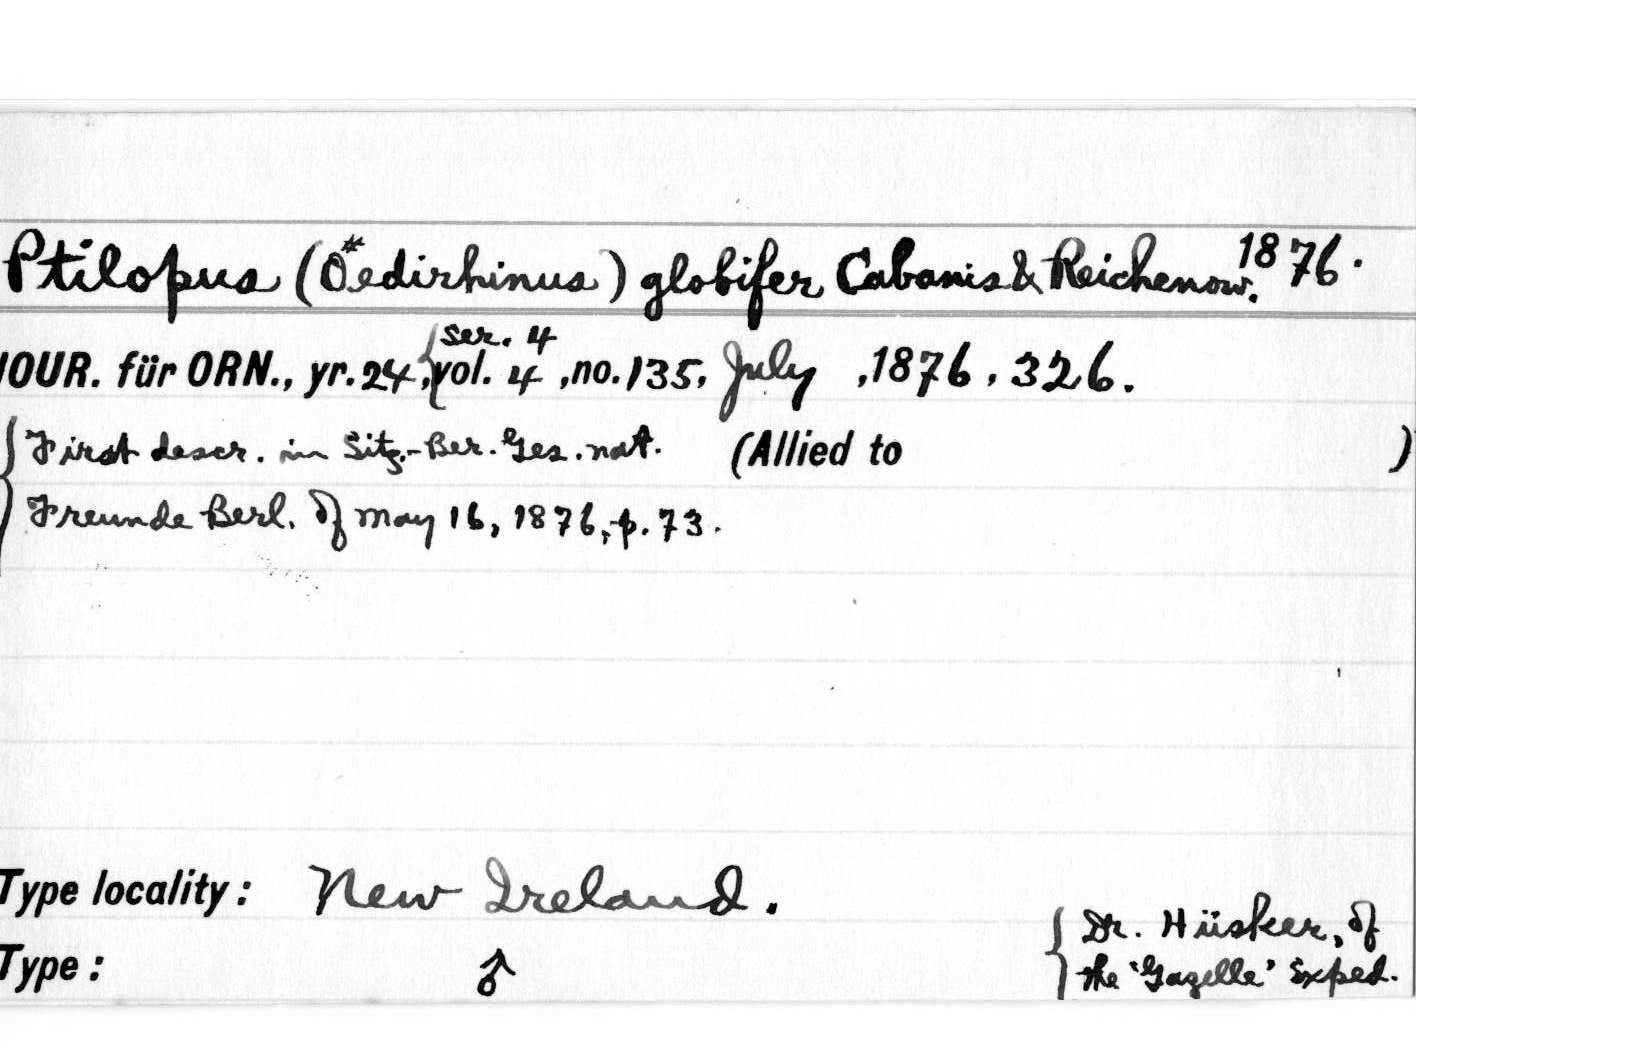 Ptilopus (Oedirhinus) globifer Cabanis & Reichenow. 1876.
JOUR. für ORN., yr. 24, {ser. 4
vol. 4, no. 135, July, 1876, 326.
{First descr. in Sitz.-Ber. Ges. nat. (Allied to )
Freunde Berl. of May 16, 1876, p. 73.
Type locality: New Ireland.
{Dr. Hüsker, of
Type: ♂ the 'Gazelle' Exped.